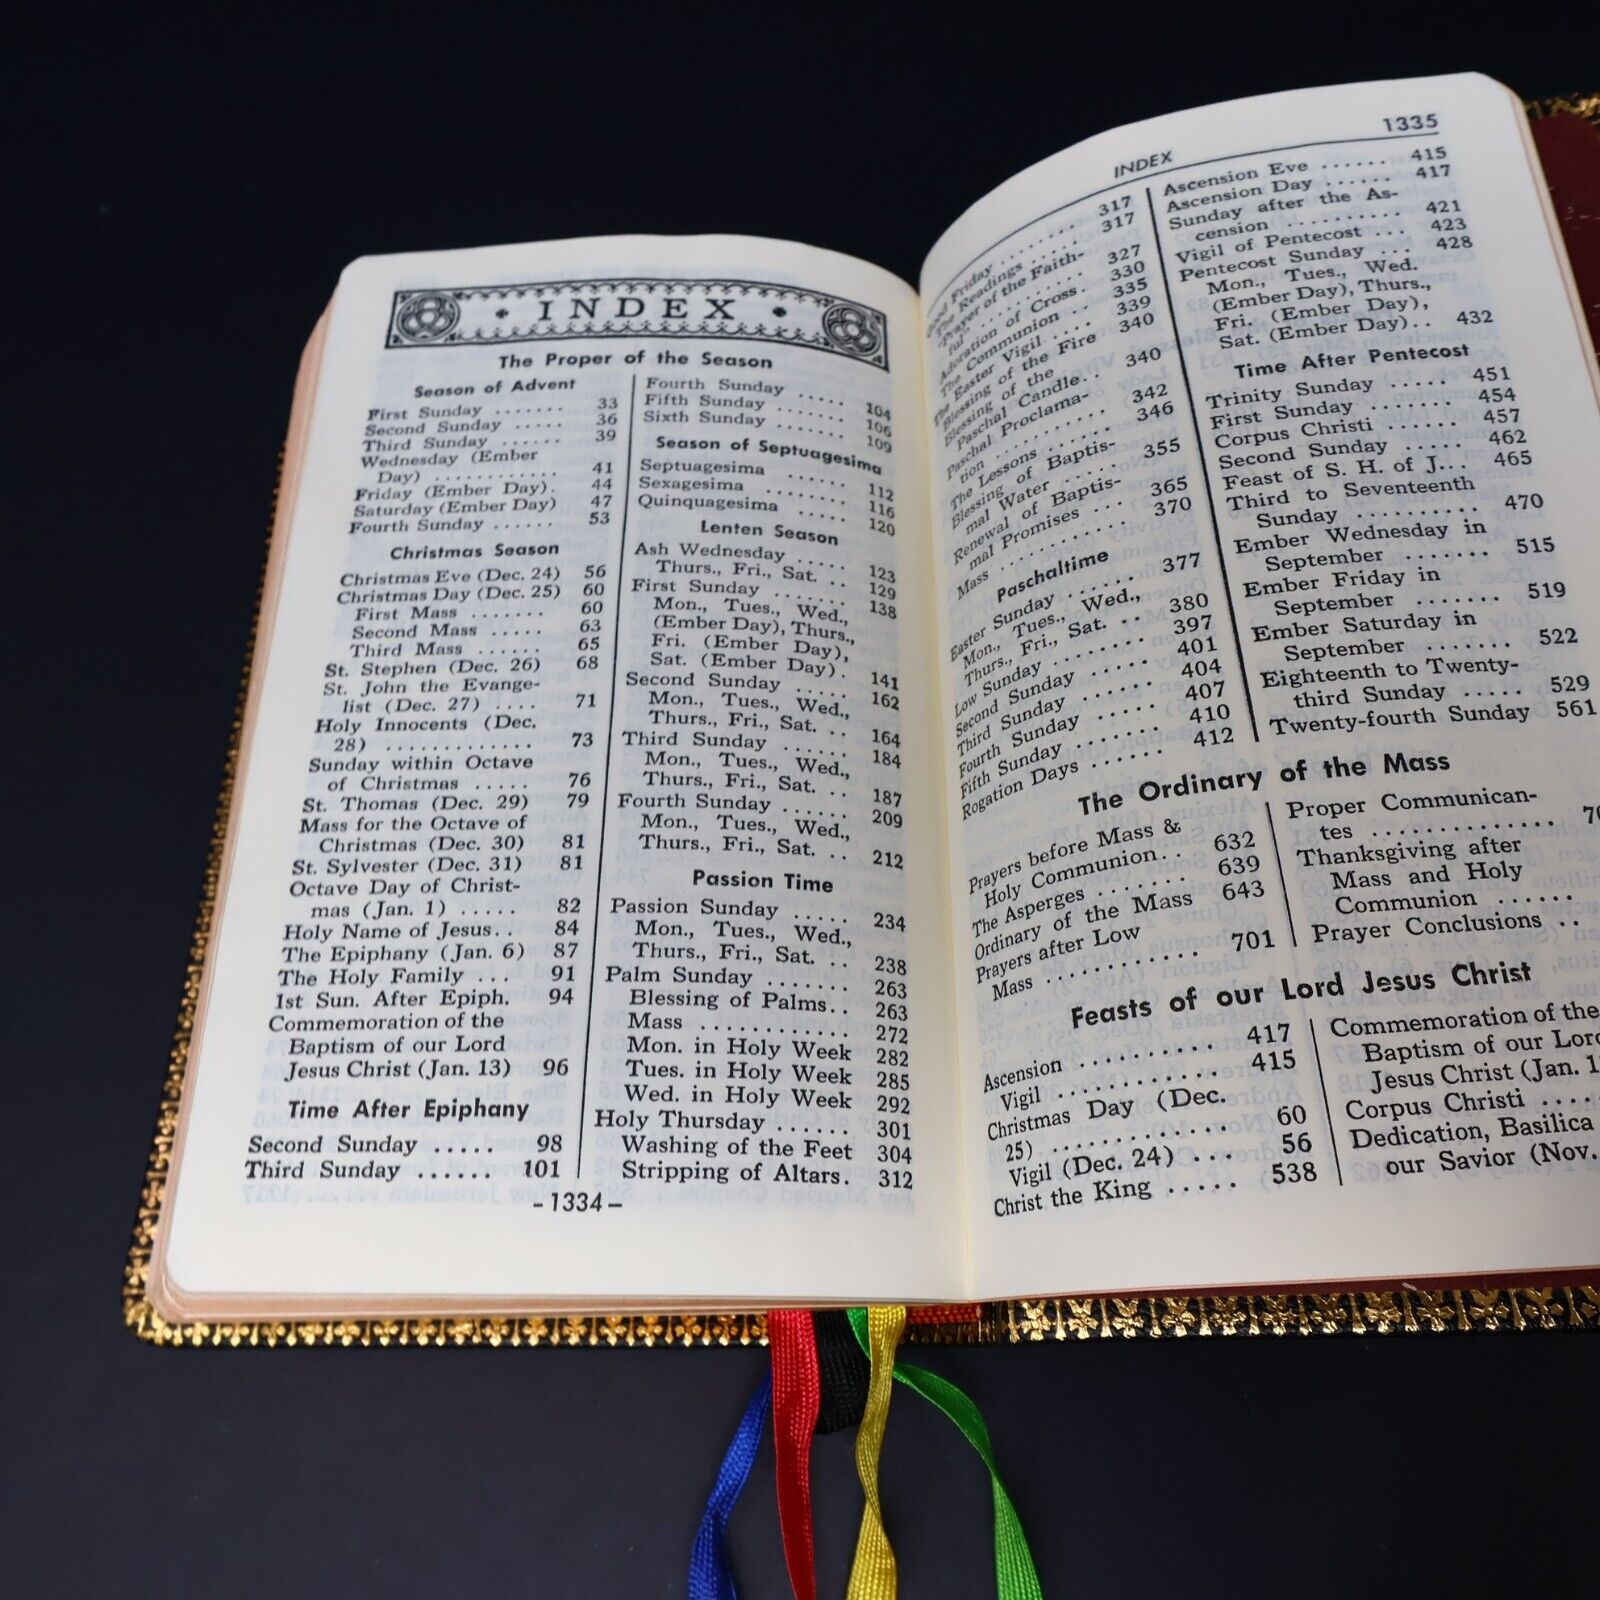 INDEX
The Proper of the Season
Season of Advent
First Sunday ....... 33
Second Sunday ..... 36
Third Sunday ...... 39
Wednesday (Ember
Day) ............ 41
Friday (Ember Day). 44
Saturday (Ember Day) 47
Fourth Sunday ...... 53
Christmas Season
Christmas Eve (Dec. 24) 56
Christmas Day (Dec. 25) 60
First Mass ....... 60
Second Mass ..... 63
Third Mass ...... 65
St. Stephen (Dec. 26) 68
St. John the Evange-
list (Dec. 27) .... 71
Holy Innocents (Dec.
28) ............. 73
Sunday within Octave
of Christmas ..... 76
St. Thomas (Dec. 29) 79
Mass for the Octave of
Christmas (Dec. 30) 81
St. Sylvester (Dec. 31) 81
Octave Day of Christ-
mas (Jan. 1) ..... 82
Holy Name of Jesus.. 84
The Epiphany (Jan. 6) 87
The Holy Family ... 91
1st Sun. After Epiph. 94
Commemoration of the
Baptism of our Lord
Jesus Christ (Jan. 13) 96
Time After Epiphany
Second Sunday ..... 98
Third Sunday ...... 101
Fourth Sunday ..... 104
Fifth Sunday ....... 106
Sixth Sunday ....... 109
Season of Septuagesima
Septuagesima ...... 112
Sexagesima ........ 116
Quinquagesima ..... 120
Lenten Season
Ash Wednesday ..... 123
Thurs., Fri., Sat. .. 129
First Sunday ....... 138
Mon., Tues., Wed.,
(Ember Day), Thurs.,
Fri. (Ember Day),
Sat. (Ember Day). 141
Second Sunday ..... 162
Mon., Tues., Wed.,
Thurs., Fri., Sat. .. 164
Third Sunday ...... 184
Mon., Tues., Wed.,
Thurs., Fri., Sat. .. 187
Fourth Sunday ...... 209
Mon., Tues., Wed.,
Thurs., Fri., Sat. .. 212
Passion Time
Passion Sunday ..... 234
Mon., Tues., Wed.,
Thurs., Fri., Sat. .. 238
Palm Sunday ....... 263
Blessing of Palms.. 263
Mass ............ 272
Mon. in Holy Week 282
Tues. in Holy Week 285
Wed. in Holy Week 292
Holy Thursday ...... 301
Washing of the Feet 304
Stripping of Altars. 312
-1334-
INDEX 1335
Good Friday ....... 317
The Readings .... 317
"Prayer of the Faith-
ful" ............ 327
Adoration of Cross. 330
The Communion .. 335
The Easter Vigil .... 339
Blessing of the Fire 340
Blessing of the
Paschal Candle.. 340
Paschal Proclama-
tion ............ 342
The Lessons ...... 346
Blessing of Baptis-
mal Water ...... 355
Renewal of Baptis-
mal Promises ... 365
Mass ............ 370
Paschaltime
Easter Sunday ..... 377
Mon., Tues., Wed.,
Thurs., Fri., Sat. .. 380
Low Sunday ........ 397
Second Sunday ..... 401
Third Sunday ...... 404
Fourth Sunday ..... 407
Fifth Sunday ....... 410
Rogation Days ...... 412
Ascension Eve ...... 415
Ascension Day ...... 417
Sunday after the As-
cension .......... 421
Vigil of Pentecost ... 423
Pentecost Sunday ... 428
Mon., Tues., Wed.
(Ember Day), Thurs.,
Fri. (Ember Day),
Sat. (Ember Day).. 432
Time After Pentecost
Trinity Sunday ..... 451
First Sunday ....... 454
Corpus Christi ...... 457
Second Sunday ..... 462
Feast of S. H. of J... 465
Third to Seventeenth
Sunday .......... 470
Ember Wednesday in
September ....... 515
Ember Friday in
September ....... 519
Ember Saturday in
September ....... 522
Eighteenth to Twenty-
third Sunday ..... 529
Twenty-fourth Sunday 561
The Ordinary of the Mass
Prayers before Mass &
Holy Communion.. 632
The Asperges ....... 639
Ordinary of the Mass 643
Prayers after Low
Mass ........... 701
Proper Communican-
tes ..............
Thanksgiving after
Mass and Holy
Communion ......
Prayer Conclusions ..
Feasts of our Lord Jesus Christ
Ascension ......... 417
Vigil ........... 415
Christmas Day (Dec.
25) ............. 60
Vigil (Dec. 24) ... 56
Christ the King ..... 538
Commemoration of the
Baptism of our Lord
Jesus Christ (Jan.
Corpus Christi ....
Dedication, Basilica
our Savior (Nov.